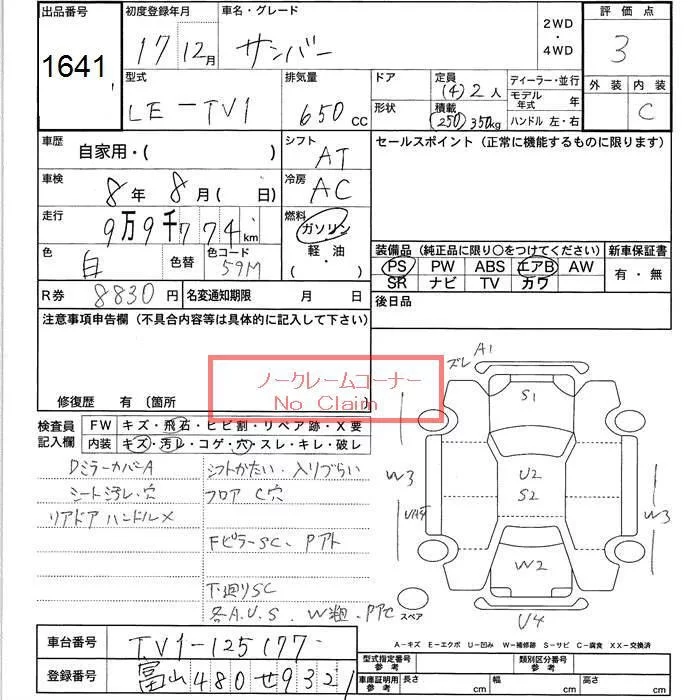 出品番号 初度登録年月 車名・グレード 2WD・4WD 評価点
1641 17 12月 サンバー 3
型式 排気量 ドア 定員 ディーラー・並行 外装 内装
LE-TV1 650 CC (4)2人 モデル年式 年 C
形状 積載 (250)350kg ハンドル 左・右
車歴 自家用・( ) シフト AT セールスポイント(正常に機能するものに限ります)
車検 8年 8月( 日) 冷房 AC
走行 9万9千774km 燃料 ガソリン
軽・油
( )
色 白 色替 色コード 59M
装備品(純正品に限り○をつけてください) 新車保証書
PS PW ABS エアB AW 有・無
SR ナビ TV カワ
R券 8830円 名変通知期限 月 日 後日品
注意事項申告欄(不具合内容等は具体的に記入して下さい)
ノークレームコーナー
No Claim
修復歴 有(箇所 )
ズレ A1
S1
検査員記入欄 FW キズ・飛石・ヒビ割・リペア跡・X要
内装 キズ・汚レ・コゲ・穴・スレ・キレ・破レ
DミラーカバーA シフトかたい・入りづらい
シート汚レ・穴 フロア C穴
リアドアハンドルX
FピラーSC、Pアト
下廻りSC
各A.U.S.W粗.Pアセ
W3
U2
S2
W3
W2
U4
スペア
A-キズ E-エクボ U-凹み W-補修跡 S-サビ C-腐食 XX-交換済
車台番号 TV1-125177
登録番号 富山480せ9321
型式指定番号 参考 類別区分番号 参考
車庫証明用 参考 長さ cm 幅 cm 高さ cm